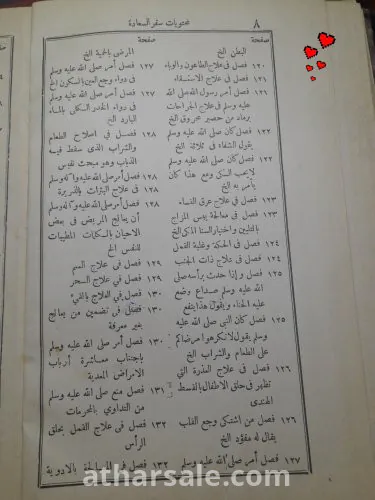 محتويات سفر السعادة
٨
صحيفة
البطن الخ
١٢٠ فصل فى علاج الطاعون والوباء
١٢١ فصل فى علاج الاستسقاء
١٢١ فصل أمر رسول الله صلى الله
عليه وسلم فى علاج الجراحات
برماد من حصير محروق الخ
١٢٢ فصل كان صلى الله عليه وسلم
يقول الشفاء فى ثلاثة الخ
١٢٢ فصل كان صلى الله عليه وسلم
لا يحب السكى ومع هذا كان
يأمر به الخ
١٢٣ فصل فى علاج عرق النساء
١٢٣ فصل فى معالجة يبس المزاج
بالتليين واختيار السنا المكى الخ
١٢٤ فصل فى الحكة وغلبة القمل
١٢٤ فصل فى علاج ذات الجنب
١٢٥ فصل واذا حدث برأسه صلى
الله عليه وسلم صداع وضع
عليه الحناء ويقول هذا ينفع
١٢٥ فصل كان النبى صلى الله عليه
وسلم يقول لا تكرهوا مرضاكم
على الطعام والشراب الخ
١٢٦ فصل فى علاج العذرة التى
تظهر فى حلق الاطفال بالقسط
الهندى
١٢٦ فصل من اشتكى وجع القلب
يقال له مفؤد الخ
١٢٧ فصل أمر صلى الله عليه وسلم
صحيفة
المرضى بالحمية الخ
١٢٧ فصل أمر صلى الله عليه وسلم
فى دواء وجع العين بالسكون الخ
١٢٧ فصل أمر صلى الله عليه وسلم
فى دواء الخدر الكلى بالماء
البارد الخ
١٢٨ فصل فى اصلاح الطعام
والشراب الذى سقط فيه
الذباب وهو مبحث نفيس
١٢٨ فصل أمر صلى الله عليه وآله وسلم
فى علاج البثرات بالذريرة
١٢٨ فصل أمر صلى الله عليه وآله وسلم
أن يعالج المريض فى بعض
الاحيان بالكلمات المطيبات
للنفس الخ
١٢٩ فصل فى علاج السم
١٢٩ فصل فى علاج السحر
١٣٠ فصل فى العلاج بالقئ
١٣٠ فصل فى تضمين من يعالج
بغير معرفة
١٣٠ فصل أمر صلى الله عليه وسلم
باجتناب معاشرة أرباب
الامراض المعدية
١٣١ فصل منع صلى الله عليه وسلم
من التداوى بالمحرمات
١٣٢ فصل فى علاج القمل بحلق
الرأس
١٣٢ فصل فى المعالجة بالادوية
atharsale.com